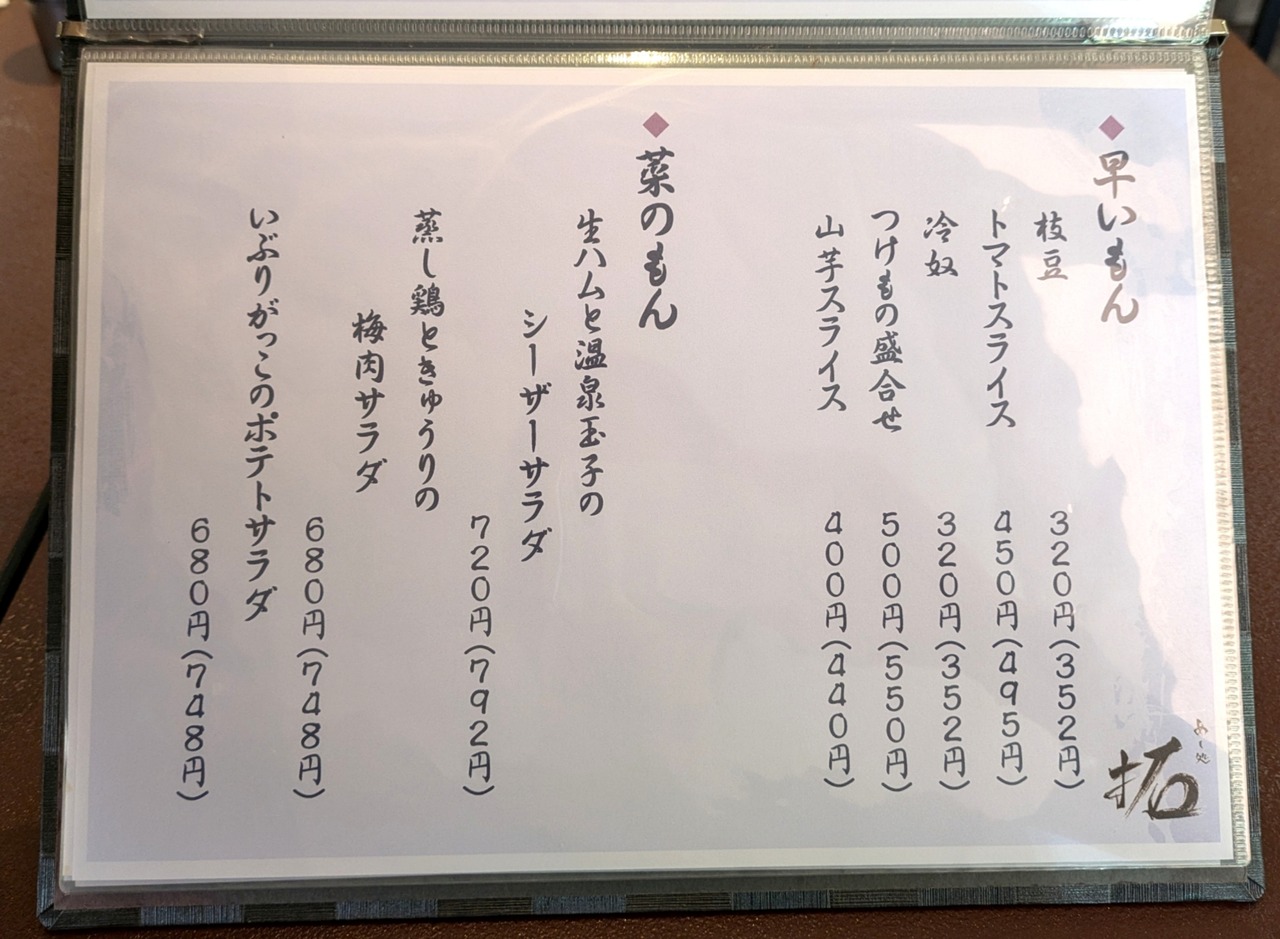 ◆早いもん
枝豆 320円(352円)
トマトスライス 450円(495円)
冷奴 320円(352円)
つけもの盛合せ 500円(550円)
山芋スライス 400円(440円)
◆菜のもん
生ハムと温泉玉子の
シーザーサラダ
720円(792円)
蒸し鶏ときゅうりの
梅肉サラダ
680円(748円)
いぶりがっこのポテトサラダ
680円(748円)
拓